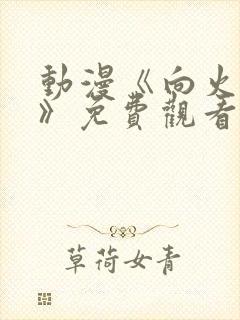 動漫《向火
》免費觀看
草荷女青